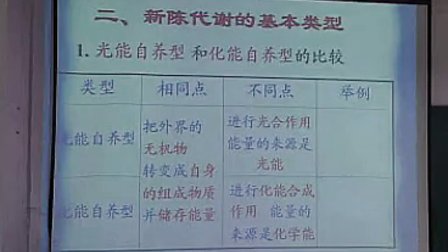 二、新陈代谢的基本类型
1. 光能自养型 和化能自养型的比较
类型 相同点 不同点 举例
光能自养型
把外界的
无机物
转变成自身
的组成物质
并储存能量
进行光合作用
能量的来源是
光能
化能自养型
进行化能合成
作用 能量的
来源是化学能